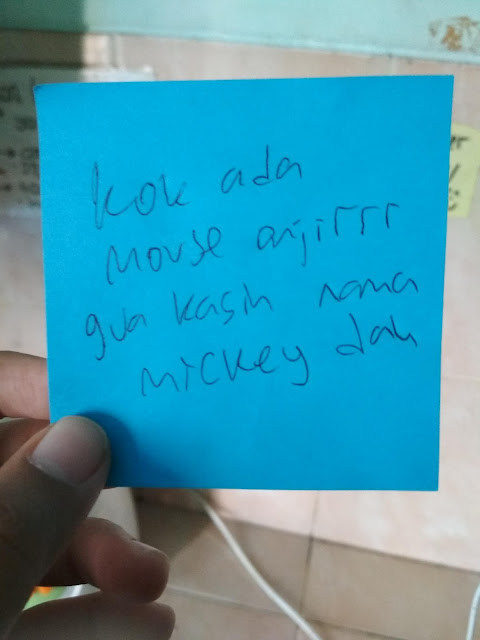 kok ada
mouse anjirrr
gua kasih nama
mickey dah